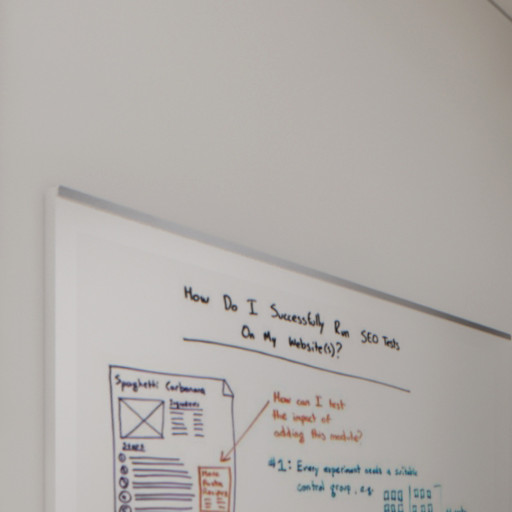 How Do I Successfully Run SEO Tests
On My Website(s)?
Spaghetti Carbonara
Ingredients
How can I test
the impact of
adding this module?
More
Pasta
Recipes
#1: Every experiment needs a suitable
control group, eg